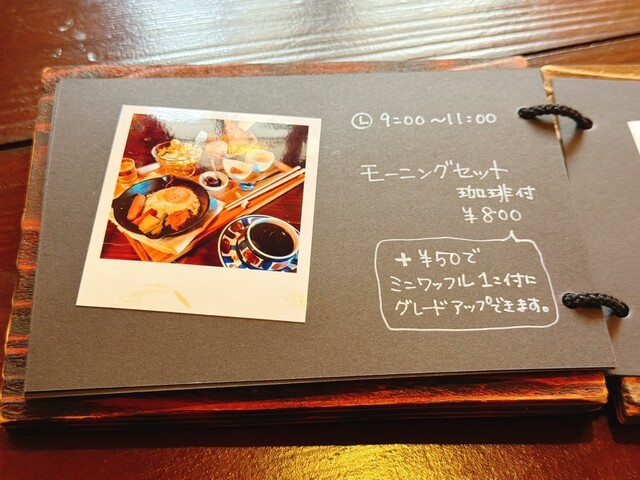 9:00〜11:00
モーニングセット
珈琲付
¥800
+¥50で
ミニワッフル1コ付に
グレードアップできます。